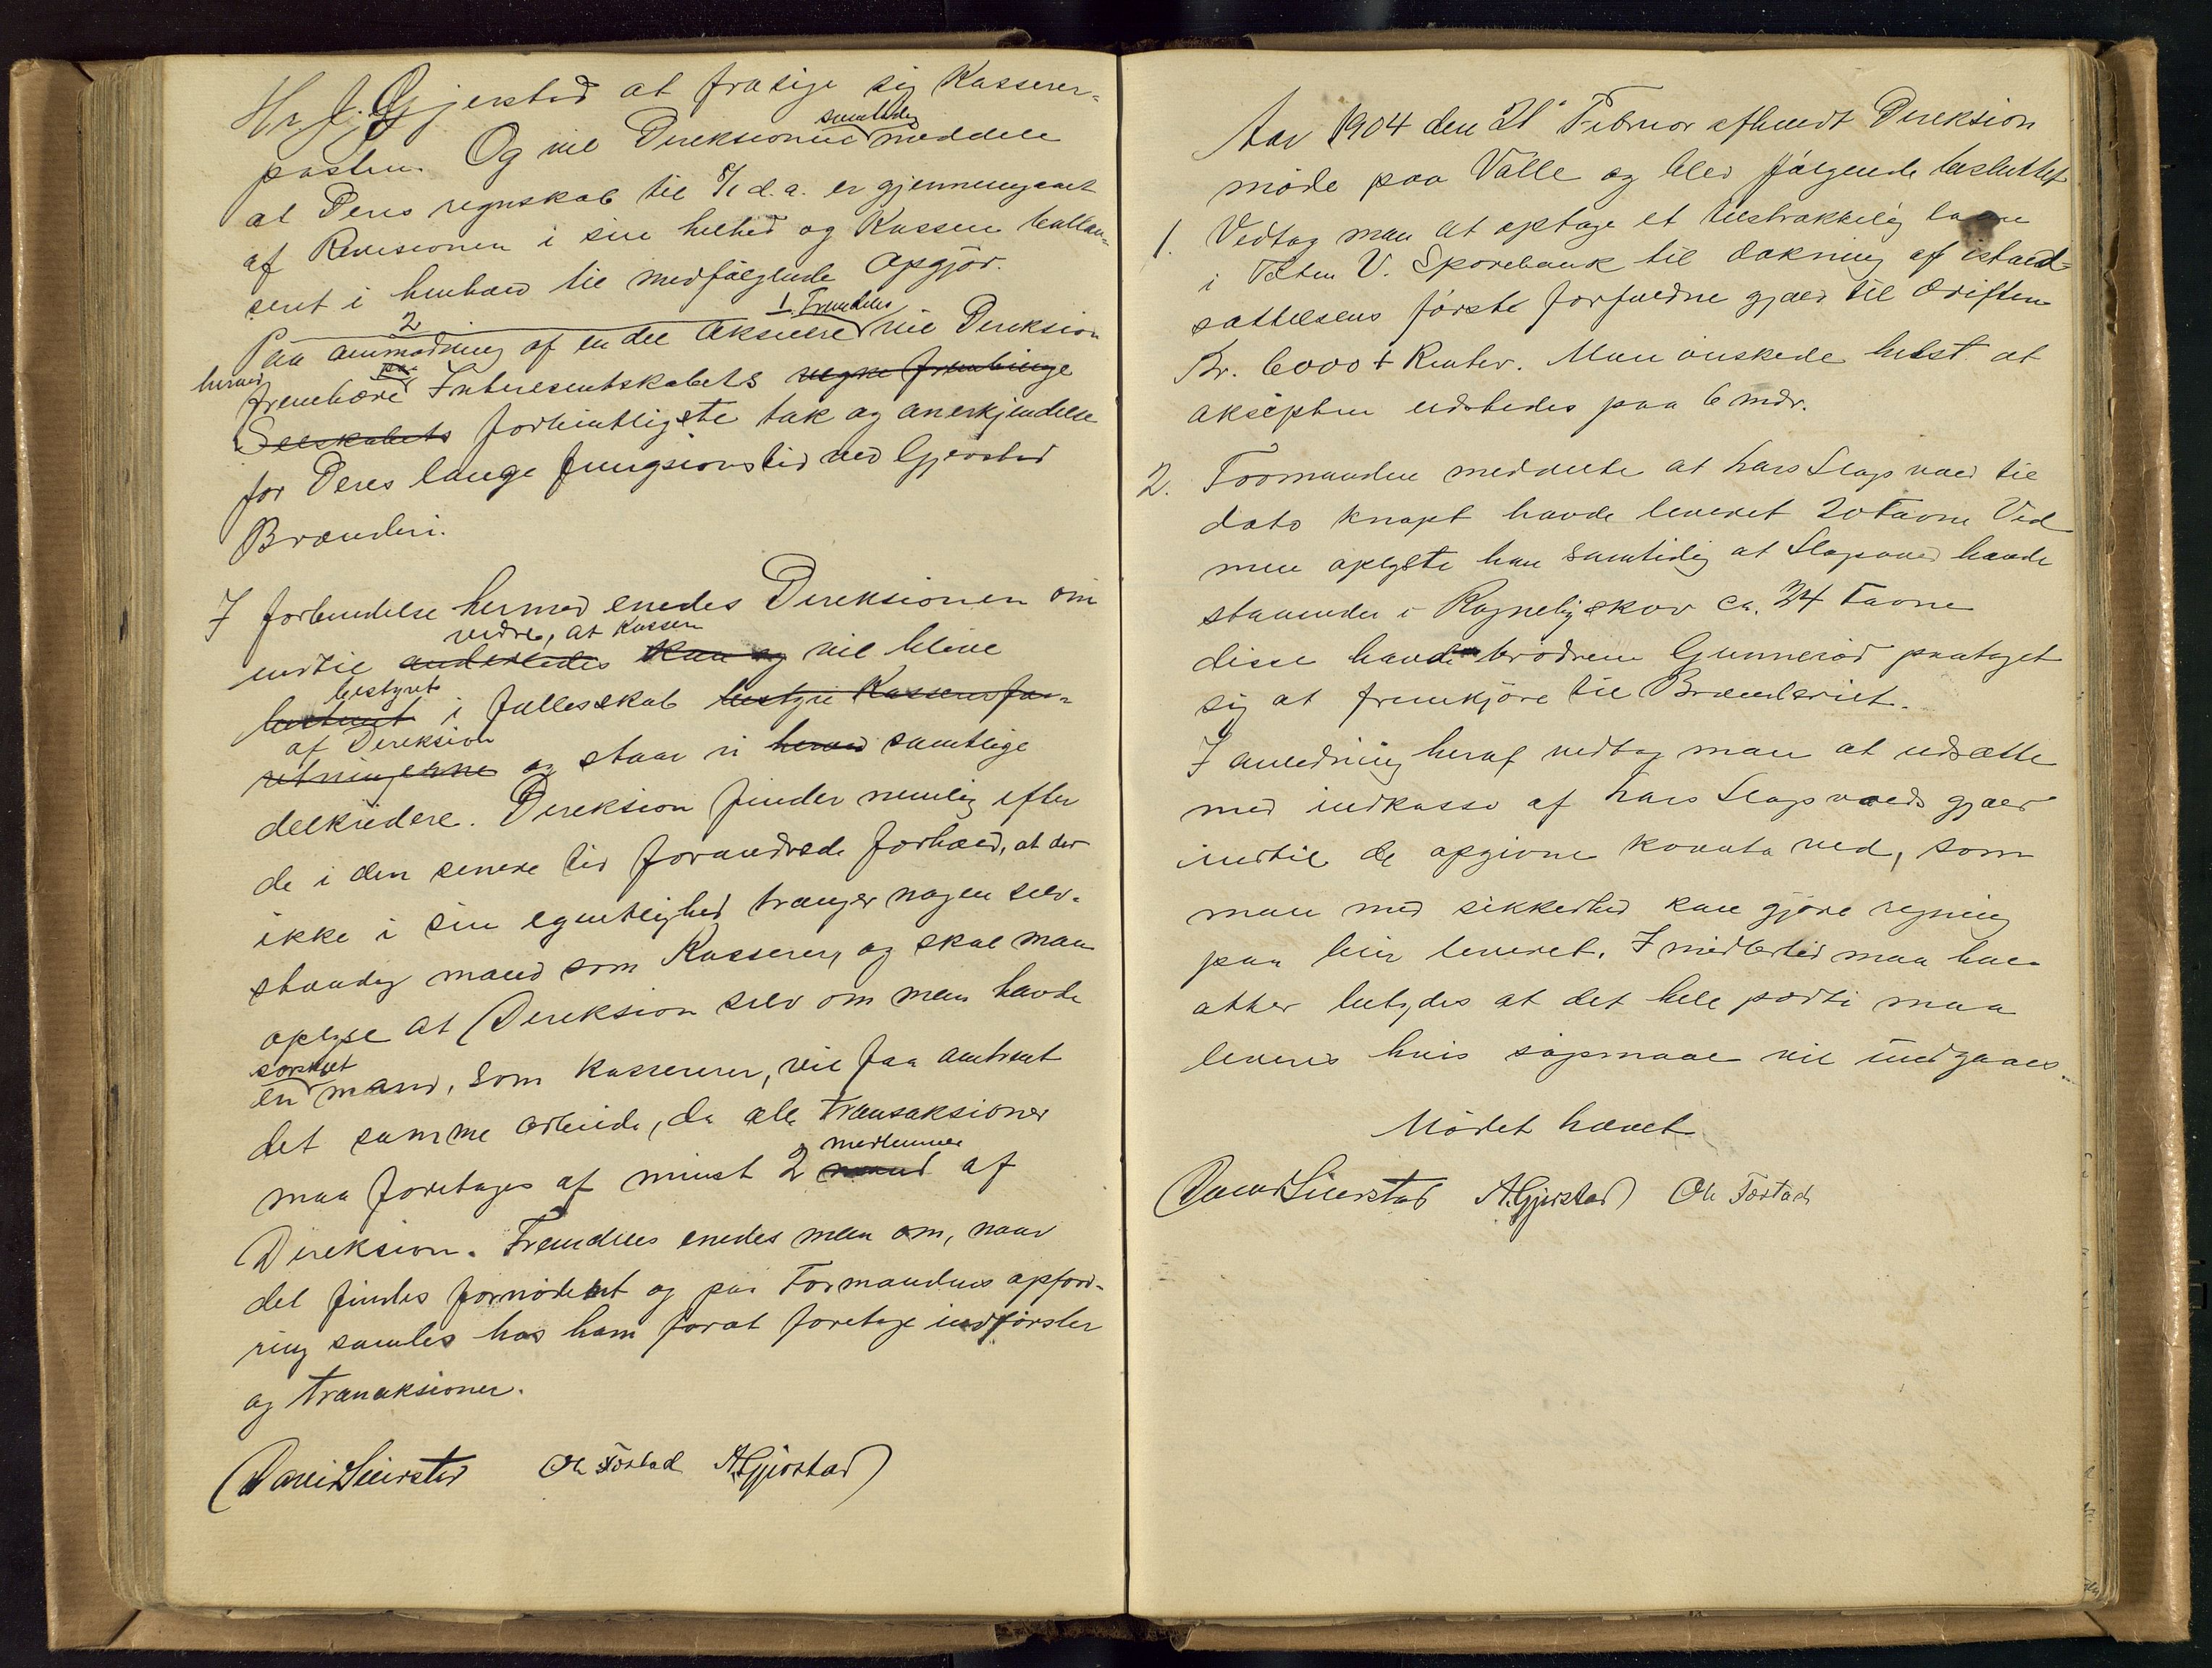 Hr. J. Gjerstad at frasige sig Kasserer-
posten. Og vil Direksionen samtidig meddele
at Deres regnskab til d.a. er gjennemgaaet
af Revisionen i sin helhed og Kassen ballan-
seret i henhold til medfølgende Opgjør.
2 1. Fremdeles
Paa anmodning af en del Aksiere vil Direksion
herved frembære Interesentskabets regne frembringe
Selskabets forbindtligste tak og anerkjendelse
for Deres lange fungsionstid ved Gjerstad
Brænderi.
I forbindelse hermed enedes Direksionen om
vedre, at Kassen
indtil anderledes kan og vil blive
bestyret
bestemt i fællesskab bestyre Kasserer for-
af Direksion
retningerne og staar vi herved samtlige
delkredere. Direksion finder nemlig efter
de i den senere tid forandrede forhold, at der
ikke i sin egentlighed trænger nogen selv-
stændig mand som Kasserer, og skal man
oplyse at Direksion selv om man havde
særskilt
en mand, som kasserer, vil faa omtrent
det samme arbeide, da alle transaksioner
medlemmer
maa foretages af minst 2 mænd af
Direksion. Fremdeles enedes man om, naar
det findes fornødent og paa Formandens opford-
ring samles hos ham forat foretage indførsler
og tranaksioner.
Ole Fostad A. Gjerstad
Aar 1904 den Februar afholdt Direksion
møde paa Valle og blev følgende besluttet
1. Vedtag man at optage et tilstrækkelig laan
i V. Sparebank til dækning af istand-
sættelsens første forfaldne gjæld til Driften
Kr. 6000 + Renter. Man ønskede helst at
aksepten udstedes paa 6 mdr.
2. Formanden meddelte at Lars Slagsvold til
dato knapt havde leveret 20 Favne Ved
men oplyste han samtidig at Slagsvold havde
staaende i Rognelijskov ca. 24 Favne
disse havde brødrene Gunnerød paataget
sig at fremkjøre til Brænderiet.
I anledning heraf vedtog man at udsætte
med indkasso af Lars Slagsvolds gjæld
indtil de opgivne kvanta ved, som
man med sikkerhed kan gjøre regning
paa blir leveret. Imidlertid maa han
atter betydes at det hele parti maa
leveres hvis søgsmaal vil undgaaes.
Mødet hævet.
A. Gjerstad Ole Fostad